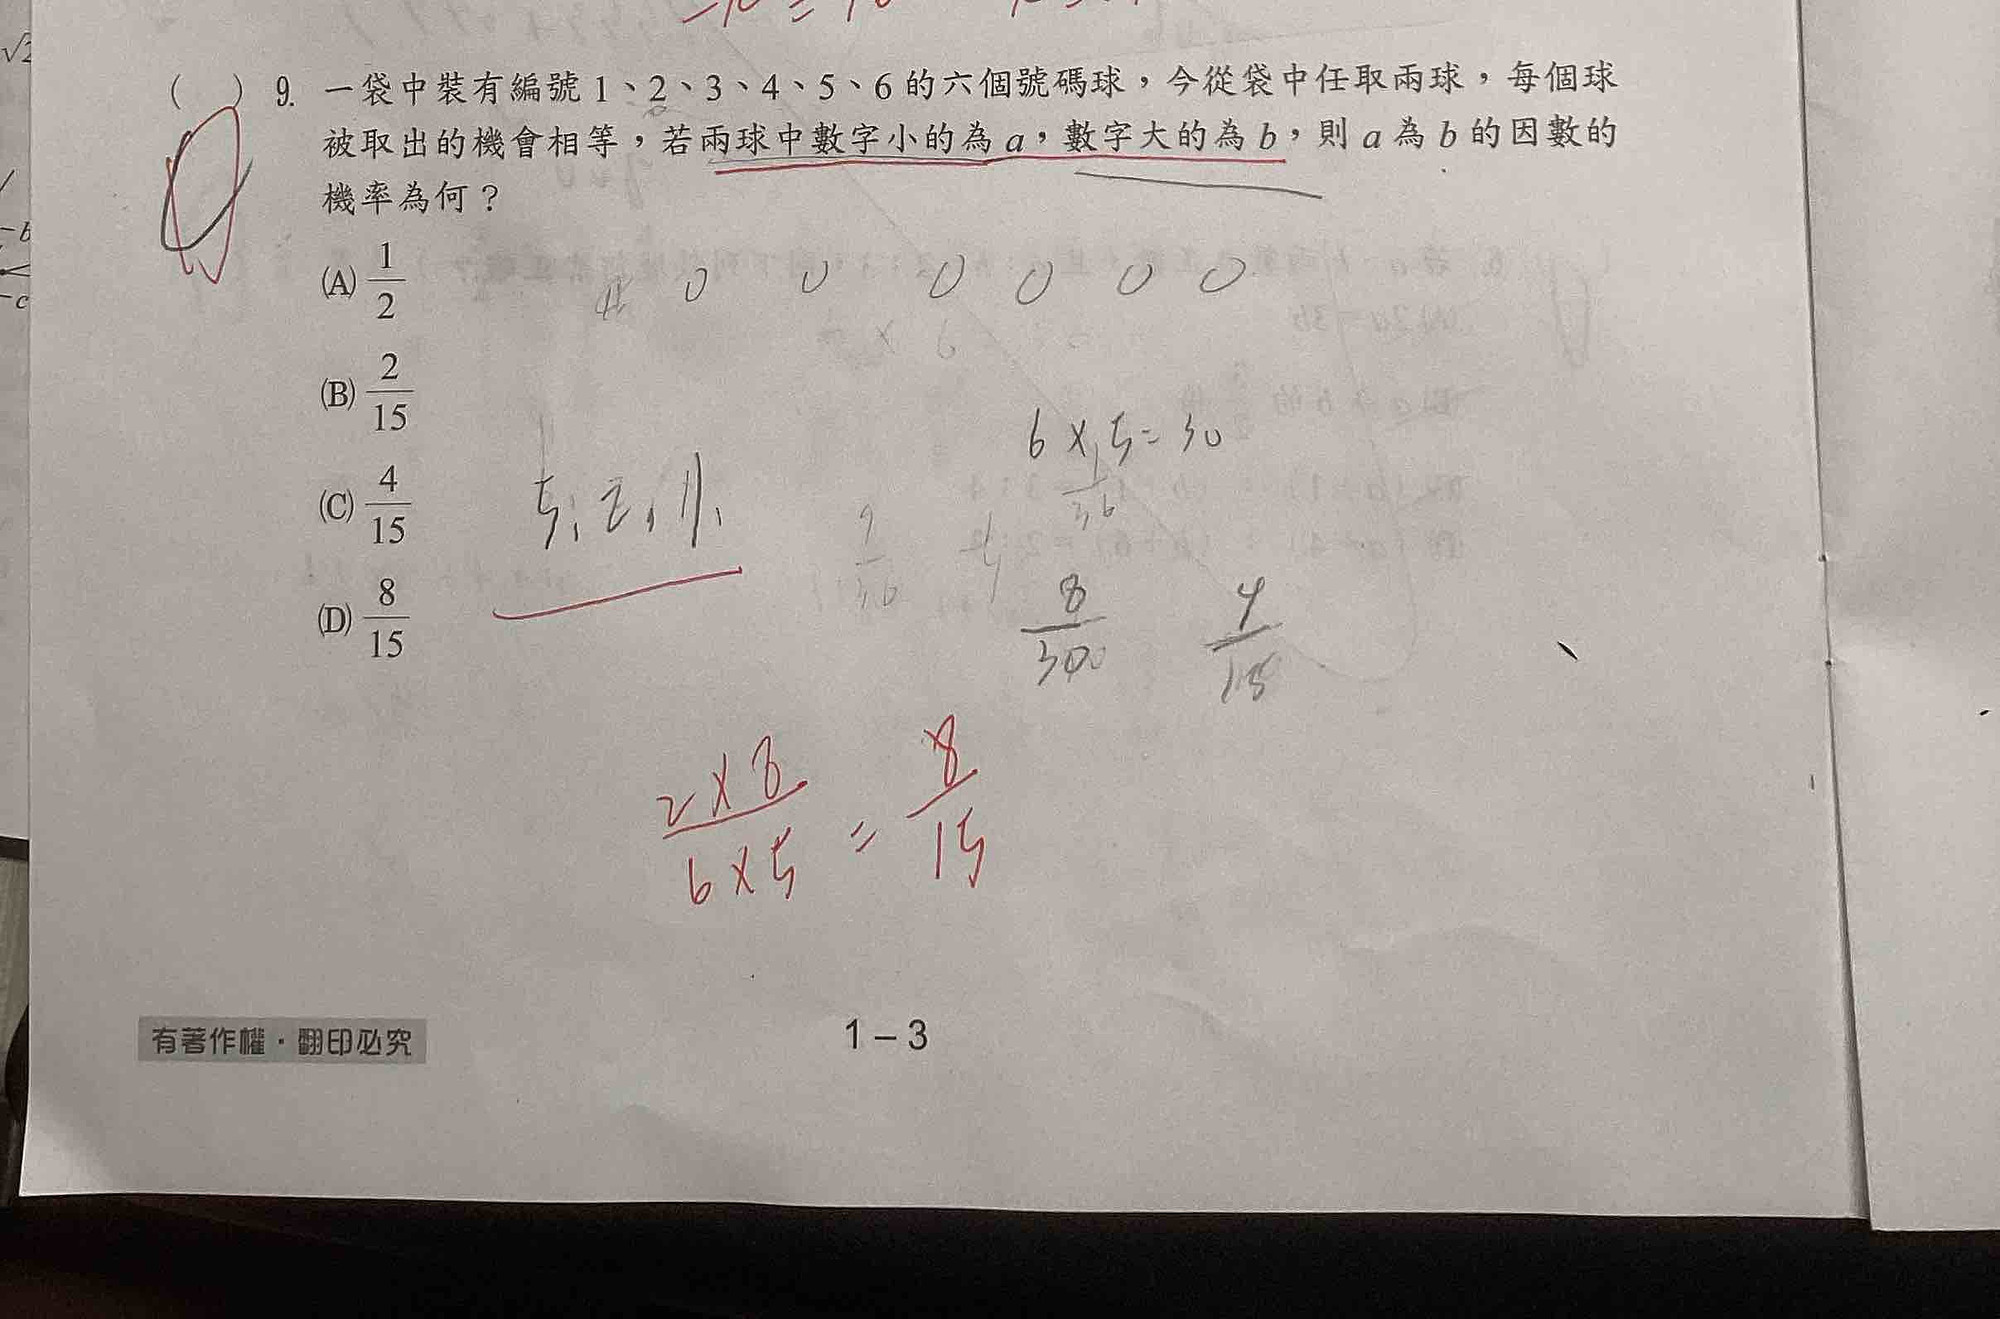 ( ) 9. 一袋中裝有編號 1、2、3、4、5、6 的六個號碼球，今從袋中任取兩球，每個球
被取出的機會相等，若兩球中數字小的為 a，數字大的為 b，則 a 為 b 的因數的
機率為何？
(A) 1/2
(B) 2/15
(C) 4/15
(D) 8/15
6 × 5 = 30
1/36
8/30
4/15
2×8/6×5 = 8/15
有著作權・翻印必究
1 – 3